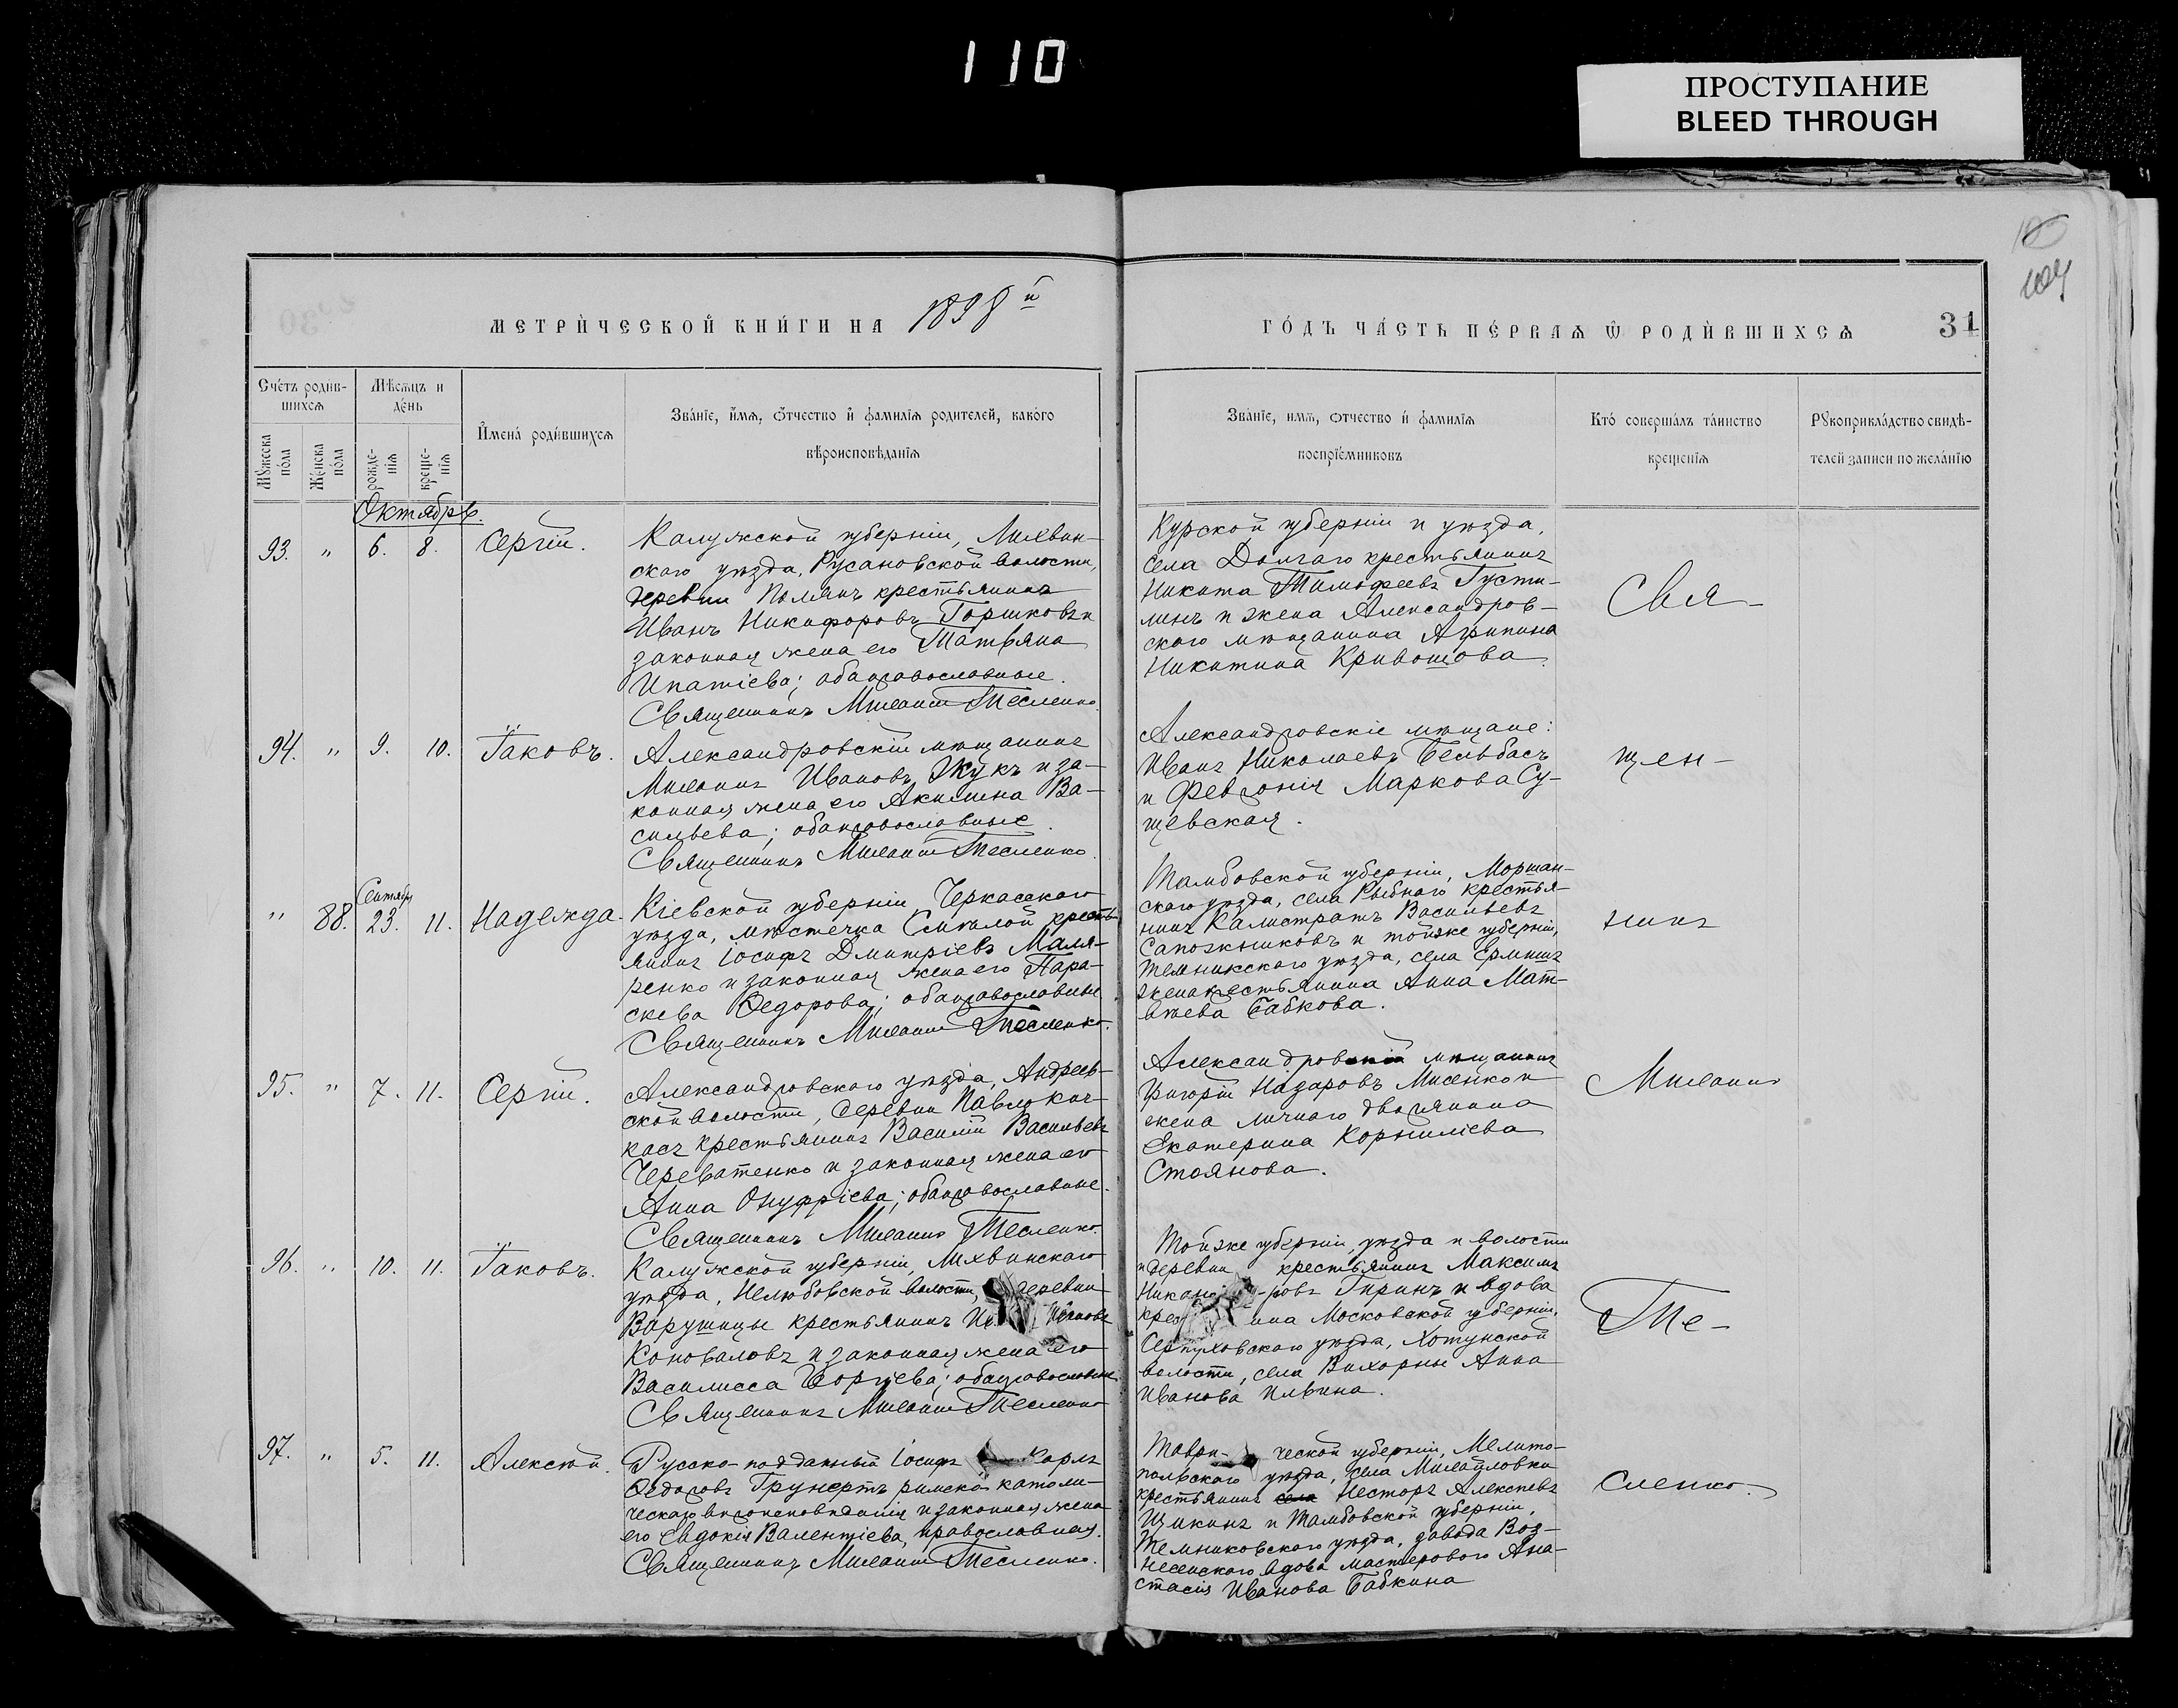 110
ПРОСТУПАНИЕ
BLEED THROUGH
104
МЕТРИЧЕСКОЙ КНИГИ НА 1898й
ГОДЪ ЧАСТЬ ПЕРВАЯ Ѿ РОДИВШИХСЯ
31
Счетъ родив-
шихся
Мужеска пола
Женска пола
Мѣсяцъ и
день
рожде-
нія
креще-
нія
Имена родившихся
Званіе, имя, отчество и фамилія родителей, какого
вѣроисповѣданія
Званіе, имя, отчество и фамилія
воспріемниковъ
Кто совершалъ таинство
крещенія
Рукоприкладство свидѣ-
телей записи по желанію
Октябрь.
93. " 6. 8. Сергій.
Калужской губерніи, Лихвин-
скаго уѣзда, Русановской волости,
деревни крестьянинъ
Иванъ Никифоровъ Горшковъ и
законная жена его Татьяна
Ипатіева; оба православные.
Священникъ Михаилъ Тесленко.
Курской губерніи и уѣзда,
села Долгаго крестьянинъ
Никита Тимофеевъ Густи-
линъ и жена Александров-
скаго мѣщанина Агрипина
Никитина Кривошова.
94. " 9. 10. Іаковъ.
Александровскій мѣщанинъ
Михаилъ Ивановъ Жукъ и за-
конная жена его Акилина Ва-
сильева; оба православные.
Священникъ Михаилъ Тесленко.
Александровскіе мѣщане:
Иванъ Николаевъ Бельбасъ
и Февронія Маркова Су-
щевская.
Сентябр
" 88. 23. 11. Надежда.
Кіевской губерніи, Черкасскаго
уѣзда, мѣстечка Смѣлой кресть-
янинъ Іосифъ Дмитріевъ Маля-
ренко и законная жена его Пара-
скева Федорова; оба православные
Священникъ Михаилъ Тесленко.
Тамбовской губерніи, Моршан-
скаго уѣзда, села Рыбнаго крестья-
нинъ Калистратъ Васильевъ
Сапожниковъ и тойже губерніи,
Темникскаго уѣзда, села Ермишъ
жена крестьянина Анна Мат-
вѣева Бабкова.
95. " 7. 11. Сергій.
Александровскаго уѣзда, Андреев-
ской волости, деревни Павлокич-
касъ крестьянинъ Василій Васильевъ
Череватенко и законная жена его
Анна Онуфріева; оба православные.
Священникъ Михаилъ Тесленко.
Александровскій мѣщанинъ
Григорій Назаровъ Мисенко и
жена личнаго дворянина
Екатерина Корниліева
Стоянова.
96. " 10. 11. Іаковъ.
Калужской губерніи, Лихвинскаго
уѣзда, Нелюбовской волости, деревни
Варушицы крестьянинъ
Коноваловъ и законная жена его
Василисса Георгіева; оба православные
Священникъ Михаилъ Тесленко
Тойже губерніи, уѣзда и волости
и деревни крестьянинъ Максимъ
Никано-ровъ Гиринъ и вдова
крес ина Московской губерніи,
Серпуховскаго уѣзда, Хатунской
волости, села Вихорны Анна
Иванова Ильина.
97. " 5. 11. Алексѣй.
Русско-подданный Іосифъ Карлъ
Федоровъ Грунертъ римско католи-
ческаго вѣроисповѣданія и законная жена
его Евдокія Валентіева, православная.
Священникъ Михаилъ Тесленко.
Таври-ческой губерніи, Мелито-
польскаго уѣзда, села Михайловки
крестьянинъ села Несторъ Алексѣевъ
Щикинъ и Тамбовской губерніи,
Темниковскаго уѣзда, завода Воз-
несенскаго вдова мастероваго Ана-
стасія Иванова Бабкина
Свя-
щен-
никъ
Михаилъ
Те-
сленко.